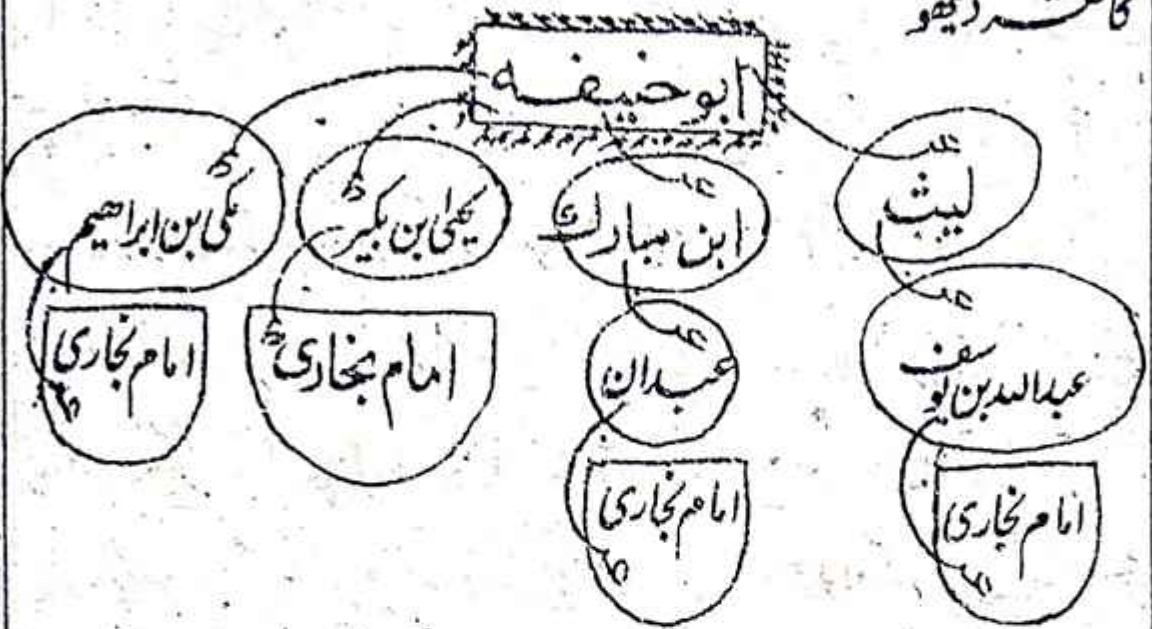 کا دیکھو
ابو حنیفہ
لیث
ابن مبارک
یحیٰ ابن بکیر
مکی ابن ابراھیم
عبداللہ بن یوسف
عبدان
امام بخاری
امام بخاری
امام بخاری
امام بخاری